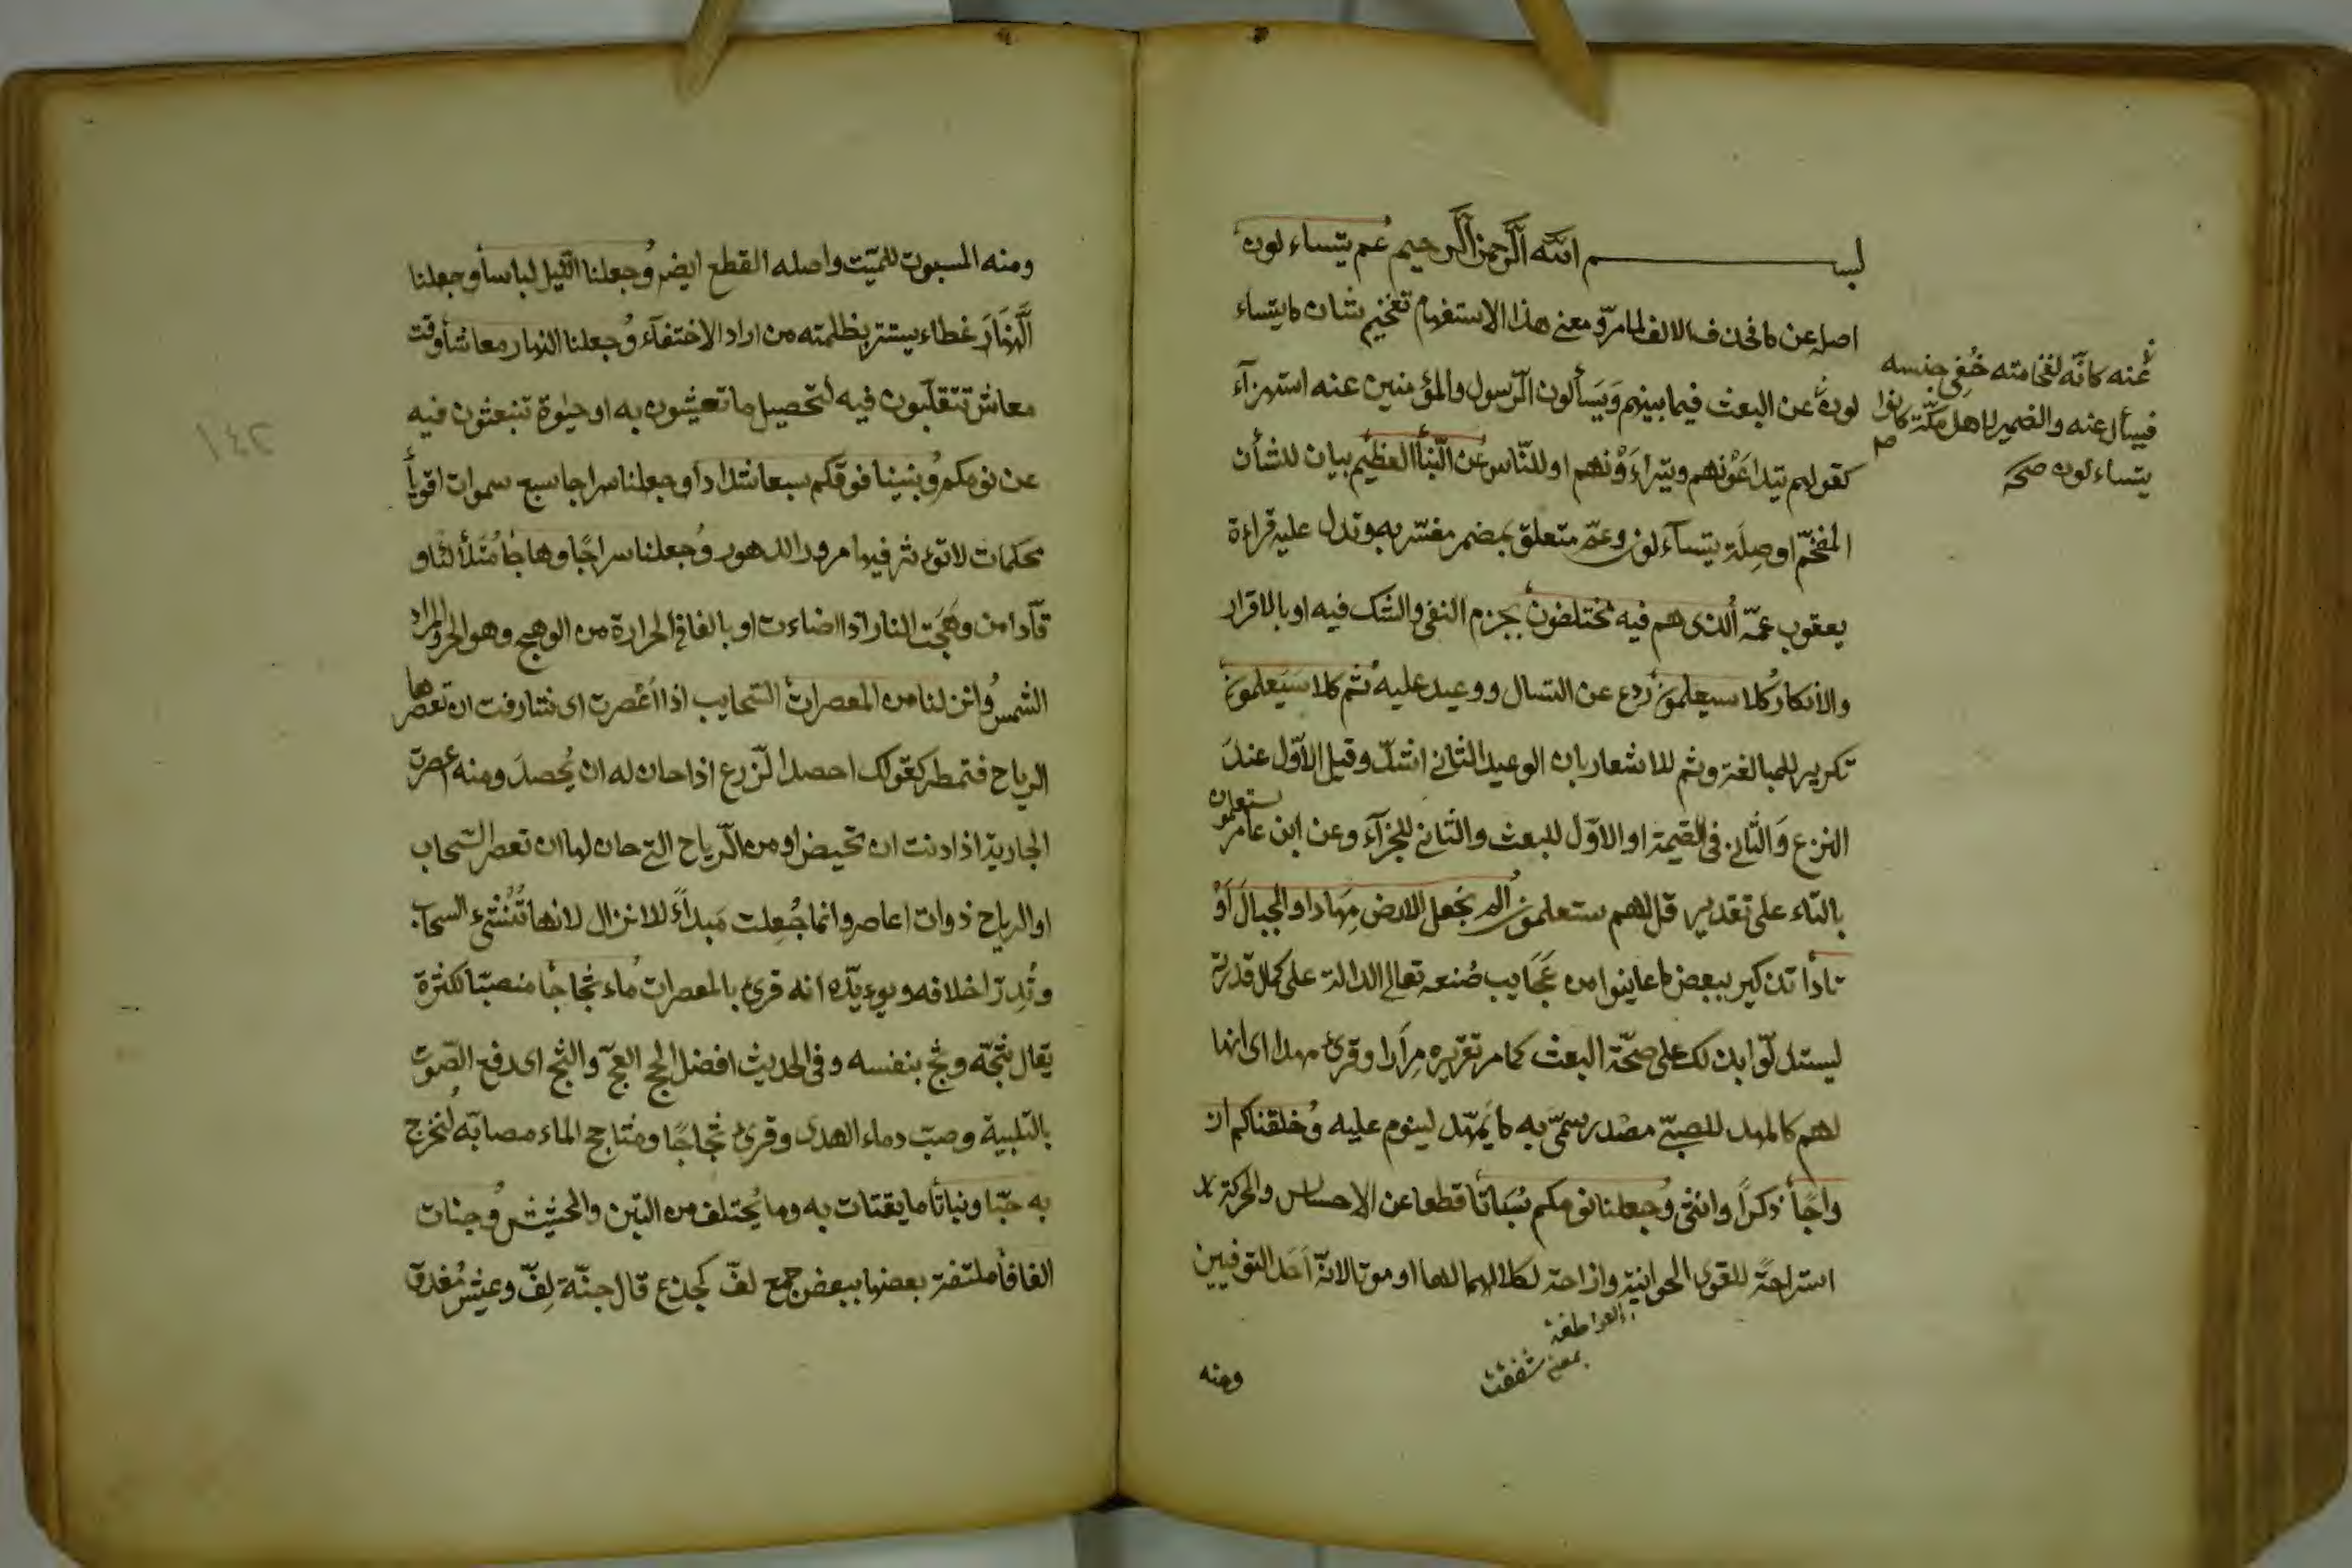 بسم الله الرحمن الرحيم عم يتساءلون
اصله عن ما فحذف الالف لما مرّ ومعنى هذا الاستفهام تفخيم شان ما يتساء
لون عن البعث فيما بينهم وَيَسألون الرّسول والمؤمنين عنه استهزآء
كقولهم يتداعَوْنهم ويتراءَوْنهم او للنّاس عن النّبأ العظيم بيان للشأن
المفخّم او صِلَة يتسآءلون وعمّ متعلق بمضمر مفسّر به وتدل عليه قراءة
يعقوب عمّه الذى هم فيه مختلفون بجزم النفى والشك فيه او بالاقرار
والأنكار كلا سيعلمون ردع عن التسال ووعيد عليه ثم كلا سَيَعلمون
تكرير للمبالغة وثم للاشعار بان الوعيد الثانى اشدّ وقيل الاوّل عندَ
النزع وَالثانى فى القيمة او الاوّل للبعث والثانى للجزآء وعن ابن عامر ستعلمون
بالتاء على تقدير قل لهم ستعلمون الم نجعل الارض مِهَادا والجبالَ اَوْ
تادا تذكير ببعض ما عاينوا من عَجَايب صُنعه تعالى الدالة على كمال قدرته
ليستدلّوا بذلك على صحّة البعث كما مر تقريره مِرَارا وقرئ مهدا اى انها
لهم كالمهد للصبىّ مصْدر سمّى به ما يُمَهّد لينوم عليه وخلقناكم از
واجًا ذكراً وانثى وجعلنا نومكم سُبَاتًا قطعا عن الاحساس والحركة
استراحةً للقوى الحوانية وازاحة لكلالهما لها او موتا لانّه اَحَد التوفيين
ومنه
عنه كانّه لفخامته خُفِى جنسه
فيسأل عنه والضمير لاهل مكّة كانوا
يتساءلون صح
بمعنى شفقت
ومنه المسبوت للميّت واصله القطع ايضر وجعلنا الليل لباسا وجعلنا
النَّهَارَ غطاء يستتر بظلمته من اراد الاختفآء وجعلنا النهار معاشا وقت
معاش تتقلّبون فيه لتحصيل ما تعيشون به او حيٰوة تنبعثون فيه
عن نومكم وبنينا فوقكم سبعا شدادا وجعلنا سراجا سبع سموات اقويأ
محكمات لا تؤثر فيها مرور الدهور وجعلنا سراجًا وهاجًا مُتَلألئا و
قآدا من وهَجَت النار اذا اضاءت او بالغا فى الحرارة من الوهج وهو الحر والمراد
الشمس وانزلنا من المعصرات السّحايب اذا اَعْصرت اى شارفت ان تعصرها
الرياح فتمطر كقولك احصد الزّرع اذا حان له ان يُحصدَ ومنه اعصرت
الجارية اذا دنت ان تحيض او من الرّياح التى حان لها ان تعصر السّحاب
او الرياح ذوات اعاصر وانما جُعِلت مَبدأً للانزال لانها تُنْشىء السحاب
وتُدِرّ اخلافه ويوءيّده انه قرئ بالمعصرات ماء ثجاجًا منصبّا لكثرة
يقال ثجّه وثج بنفسه وفى الحديث افضل الحج العجّ والثج اى رفع الصّوت
بالتلبية وصبّ دماء الهدى وقرئ ثجاجًا ومثاجج الماء مصابّه لنخرج
به حبّا ونباتا ما يقتات به وما يُختلف من التبن والحشيش وجنات
الفافا ملتفة بعضها ببعض جمع لفّ كجذع قال جنّة لِفّ وعيش مُغدق
٢٤١